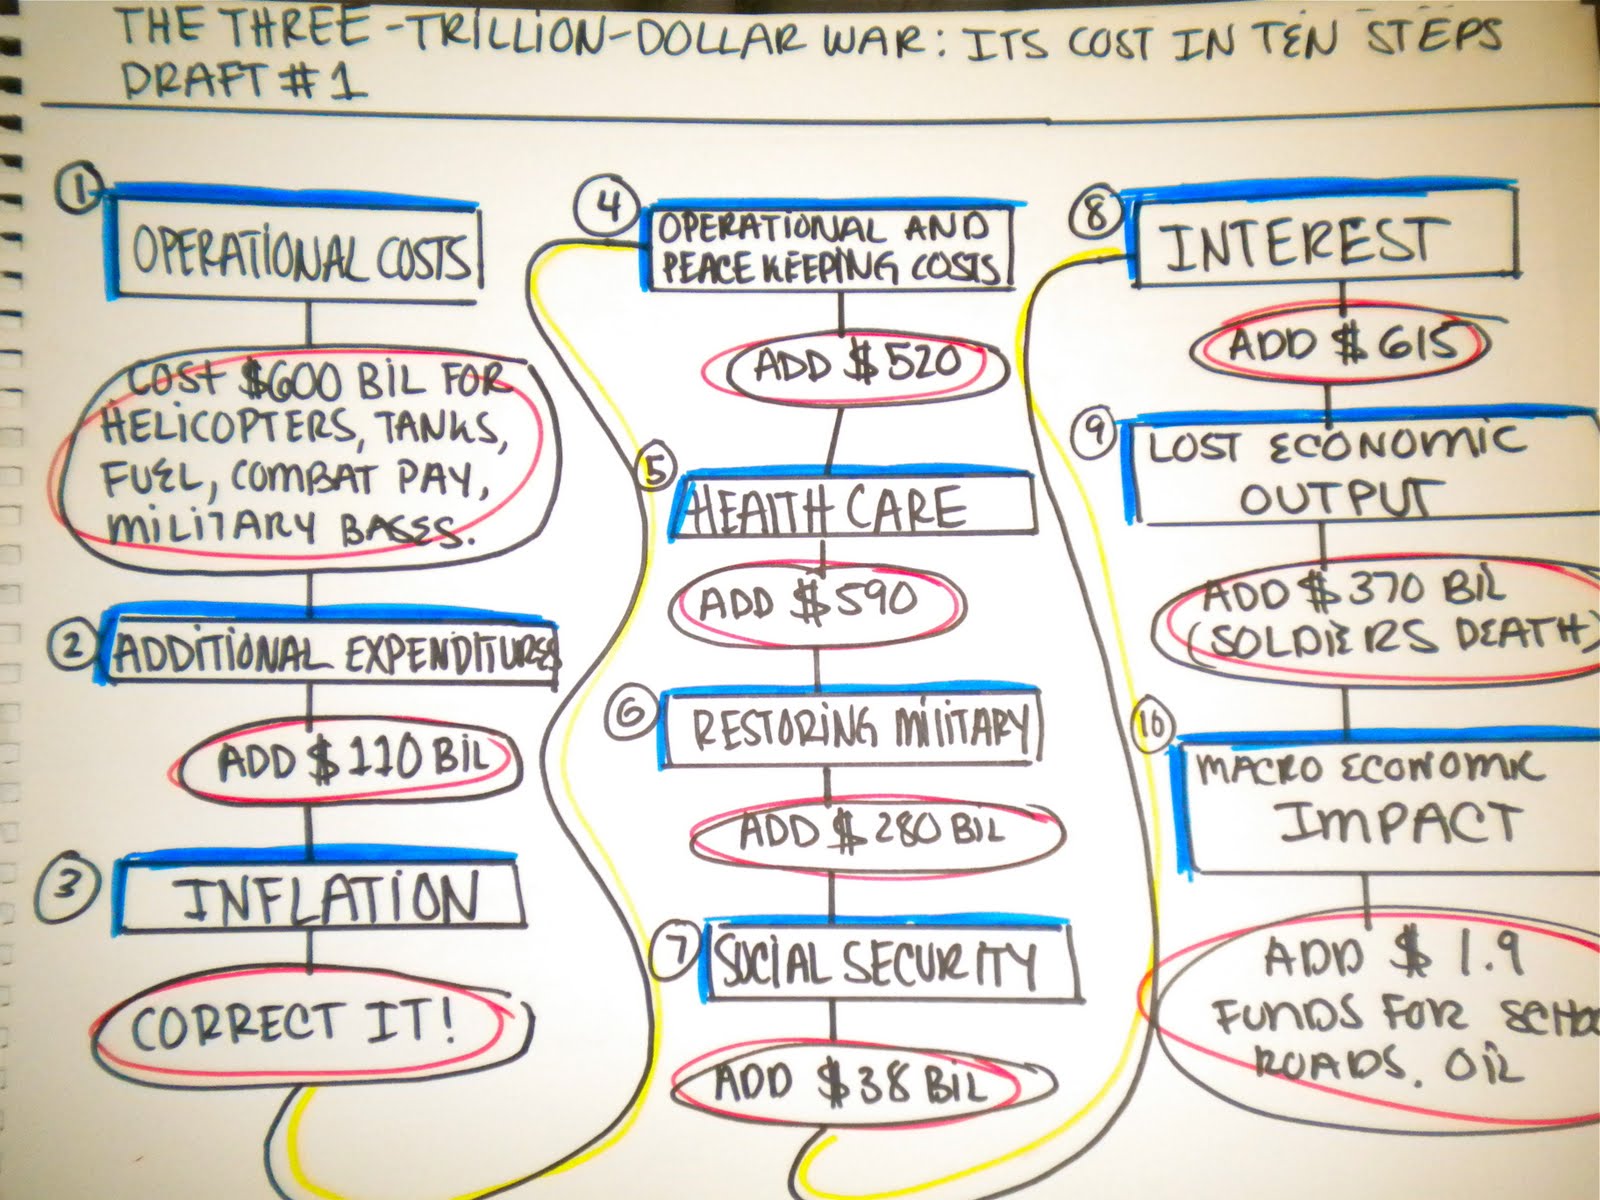 THE THREE-TRILLION-DOLLAR WAR: ITS COST IN TEN STEPS
DRAFT #1
1
OPERATIONAL COSTS
COST $600 BIL FOR
HELICOPTERS, TANKS,
FUEL, COMBAT PAY,
MILITARY BASES.
2
ADDITIONAL EXPENDITURES
ADD $110 BIL
3
INFLATION
CORRECT IT!
4
OPERATIONAL AND
PEACE KEEPING COSTS
ADD $520
5
HEALTH CARE
ADD $590
6
RESTORING MILITARY
ADD $280 BIL
7
SOCIAL SECURITY
ADD $38 BIL
8
INTEREST
ADD $615
9
LOST ECONOMIC
OUTPUT
ADD $370 BIL
(SOLDIERS DEATH)
10
MACRO ECONOMIC
IMPACT
ADD $1.9
FUNDS FOR SCHOO
ROADS, OIL